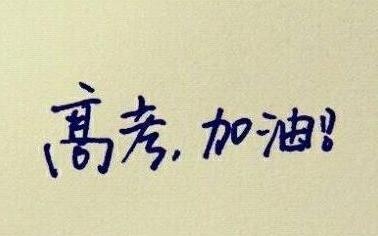 高考，加油!!